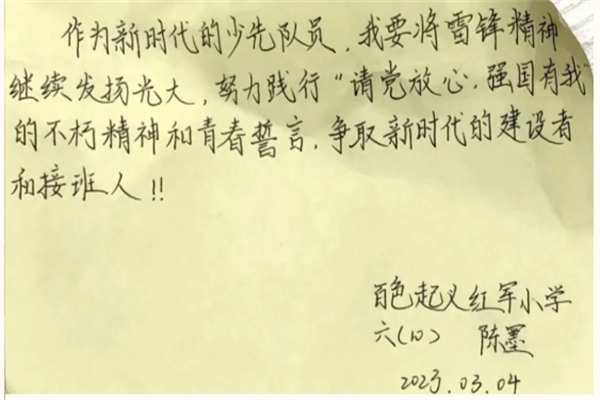 作为新时代的少先队员，我要将雷锋精神
继续发扬光大，努力践行“请党放心，强国有我”
的不朽精神和青春誓言，争取新时代的建设者
和接班人!!
百色起义红军小学
六(10) 陈墨
2023.03.04